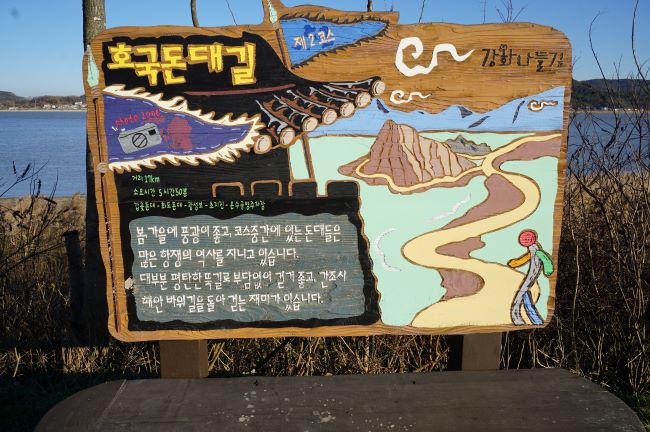 호국돈대길
제2코스
강화나들길
photo zone
거리 17km
소요시간 5시간50분
갑곶돈대-화도돈대-광성보-초지진-온수공영주차장
봄 가을에 풍광이 좋고, 코스중간에 있는 돈대들은
많은 항쟁의 역사를 지니고 있습니다.
대부분 평탄한 뚝길로 부담없이 걷기 좋고, 간조시
해안 바위길을 돌아 걷는 재미가 있습니다.